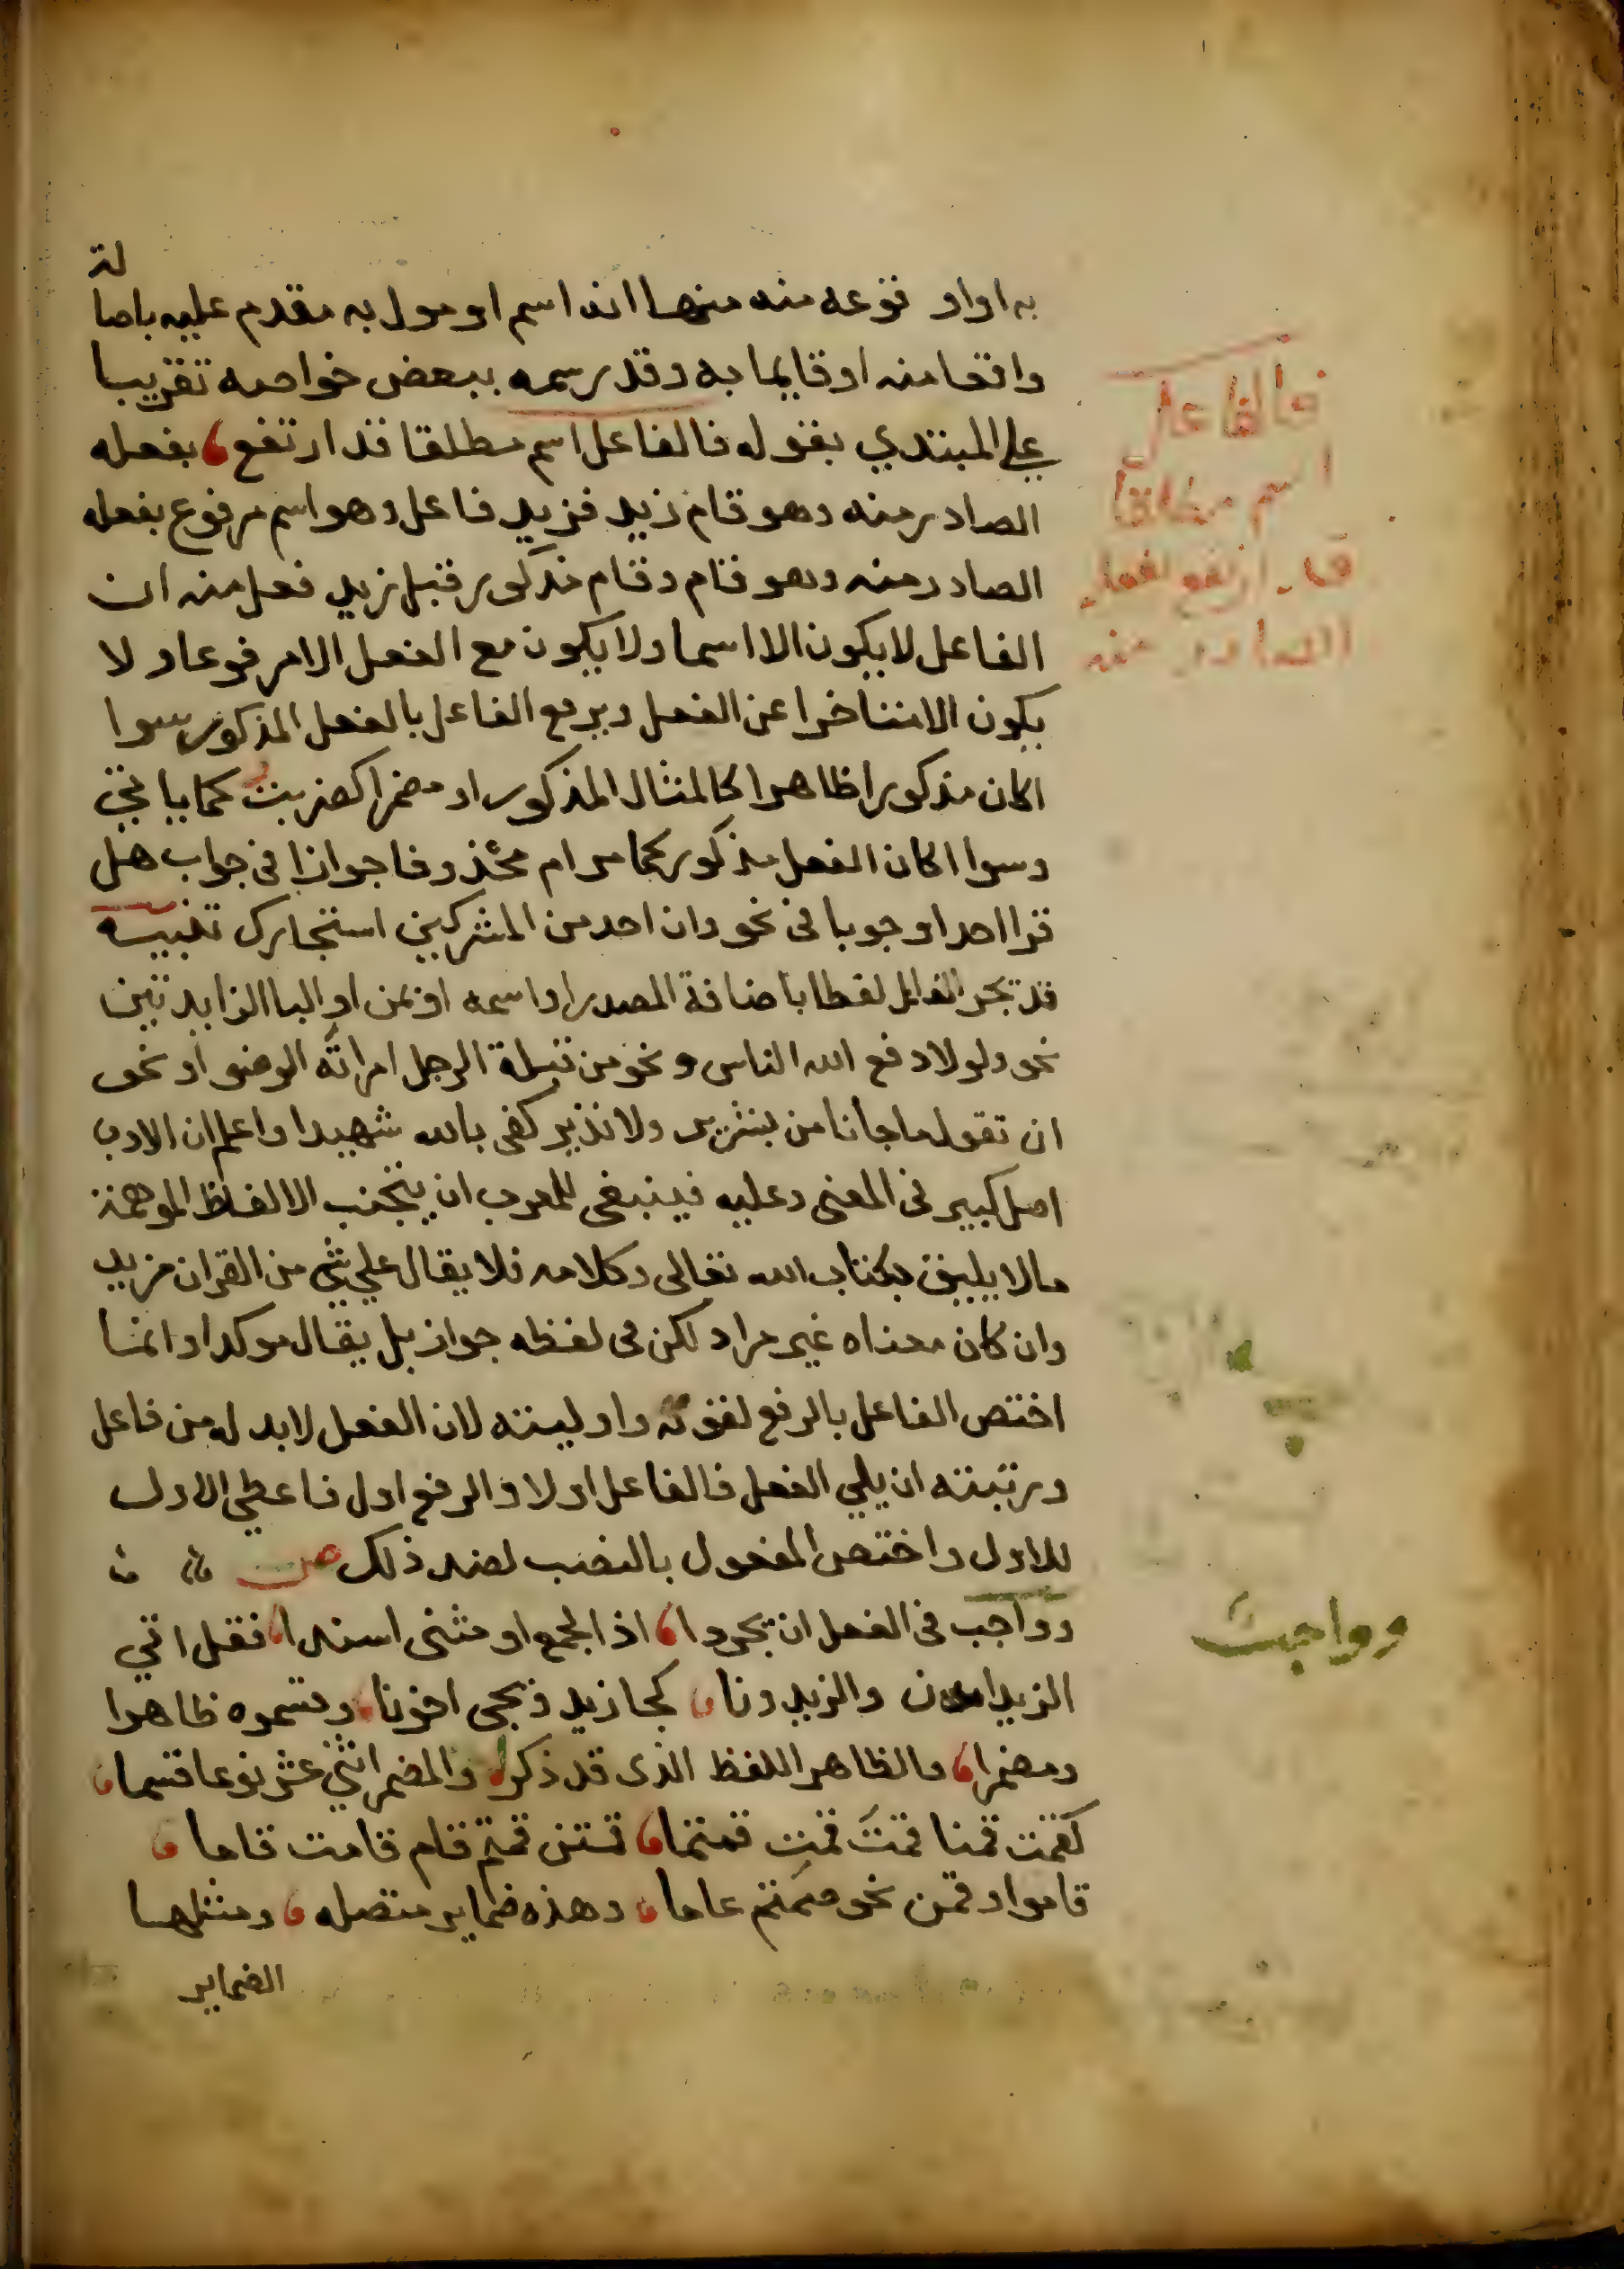 به او او نوعه منه منها انه اسم او مول به مقدم عليه باصا
لة
واقعا منه او قايما به وقد رسمه ببعض خواصه تقريبا
علي المبتدي بقوله فالفاعل اسم مطلقا قد ارتفع بفعله
الصادر منه وهو قام زيد فزيد فاعل وهو اسم مرفوع بفعله
الصادر منه وهو قام وقام مذكور قبل زيد فعل منه ان
الفاعل لا يكون الا اسما ولا يكون مع الفعل الا مرفوعا ولا
يكون الا متاخرا عن الفعل ويرفع الفاعل بالفعل المذكور سوا
اكان مذكورا ظاهرا كالمثال المذكور او مضمرا كضربت كما ياتي
وسوا اكان الفعل مذكور كما مر ام محذوفا جوازا في جواب هل
قرا احد او جوبا في نحو وان احد من المشركين استجارك تنبيه
قد يجر الفاعل لفظا باضافة المصدر او اسمه او بمن او البا الزايدتين
نحو ولولا دفع الله الناس ونحو من قبلة الرجل امراته الوضو او نحو
ان تقولوا ما جانا من بشير ولا نذير كفى بالله شهيدا واعلم ان الادب
اصل كبير في المعنى وعليه فينبغي للمعرب ان يتجنب الالفاظ الموهمة
مالا يليق بكتاب الله تعالى وكلامه فلا يقال علي شي من القران مزيد
وان كان معناه غير مراد لكن في لفظه جواز بل يقال موكدا وانما
اختص الفاعل بالرفع لقوته واوليته لان الفعل لابد له من فاعل
ورتبته ان يلي الفعل فالفاعل اولا والرفع اول فاعطي الاول
للاول واختص المفعول بالنصب لضد ذلك ص
وواجب في الفعل ان يجردا اذا لجمع او مثنى اسندا فقل اتي
الزيدان والزيدونا كجا زيد ويجى اخونا وقسموه ظاهرا
ومضمرا فالظاهر اللفظ الذى قد ذكرا والمضمر اثني عشر نوعا قسما
كقمت قمنا قمتَ قمتِ قمتما قمتن قمتم قام قامت قاما
قاموا وقمن نحو صمتم عاما وهذه ضماير متصله ومثلها
الضماير
فالفاعل
اسم مطلقا
قد ارتفع بفعله
الصادر منه
وواجب